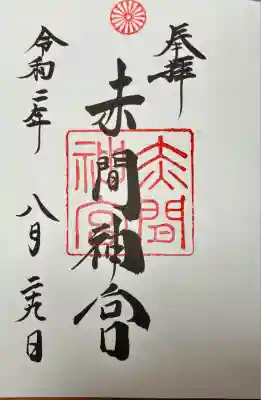 奉拝
赤間神宮
赤間神宮
令和二年 八月二十九日